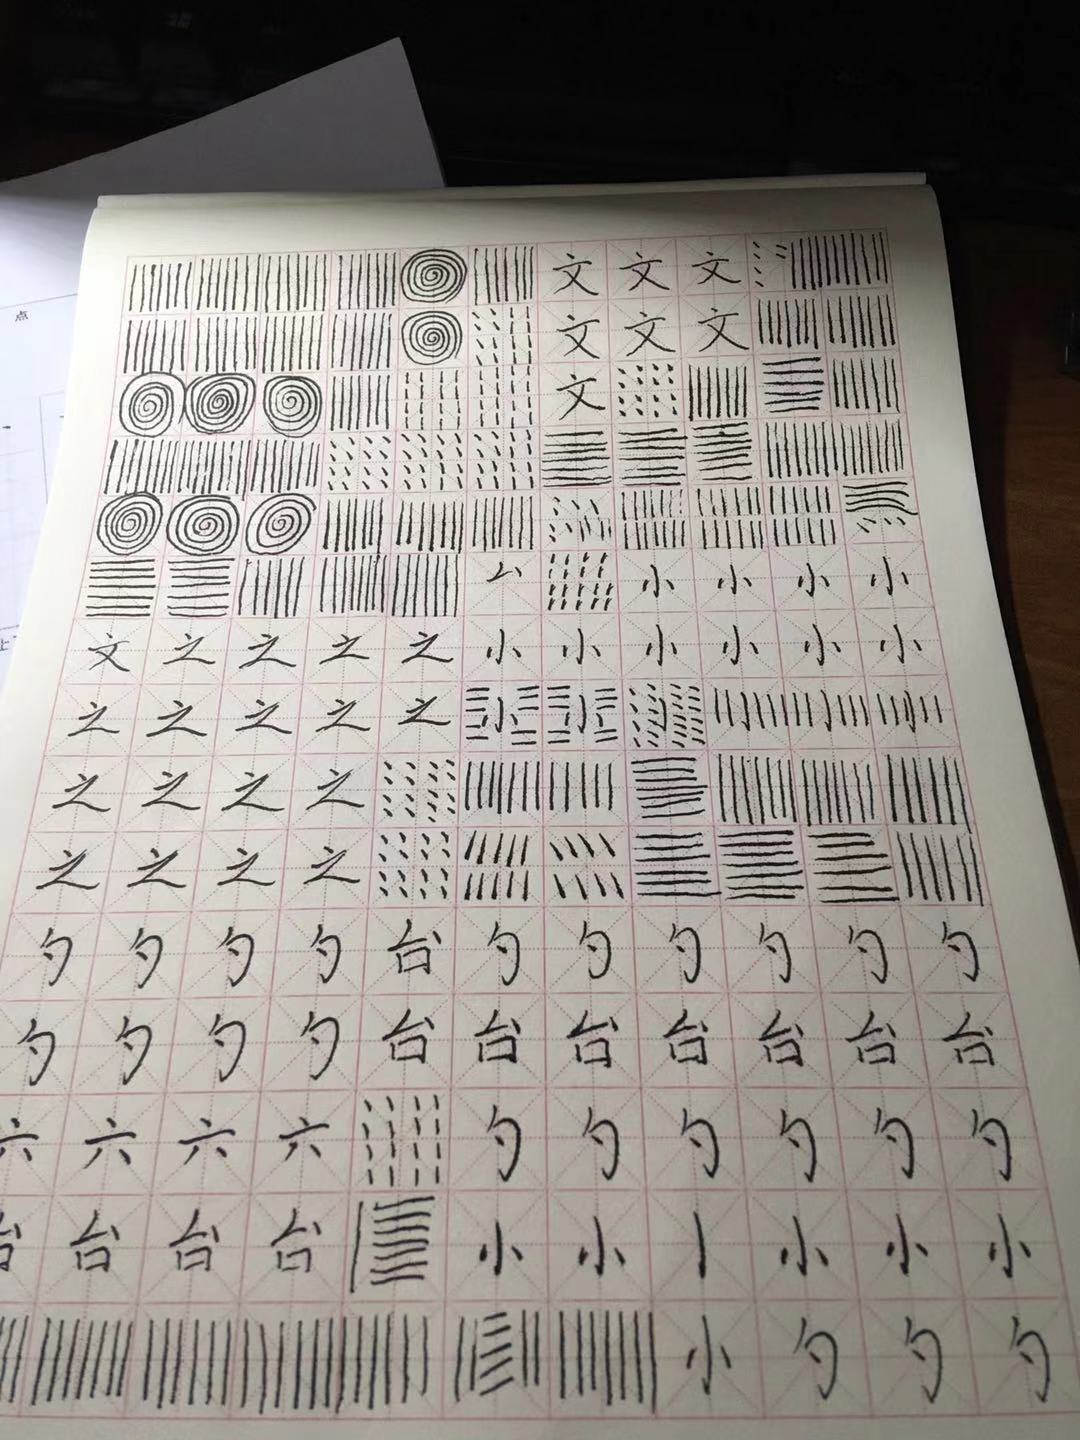 点
文 文 文
文 文 文
文
小 小 小 小
文 之 之 之 之 小 小 小 小 小 小
之 之 之 之 之 小 小
之 之 之 之
之 之 之 之
勺 勺 勺 勺 台 勺 勺 勺 勺 勺 勺
勺 勺 勺 勺 台 台 台 台 台 台 台
六 六 六 六 勺 勺 勺 勺 勺 勺
台 台 台 台 小 小 小 小 小
小 勺 勺 勺
上